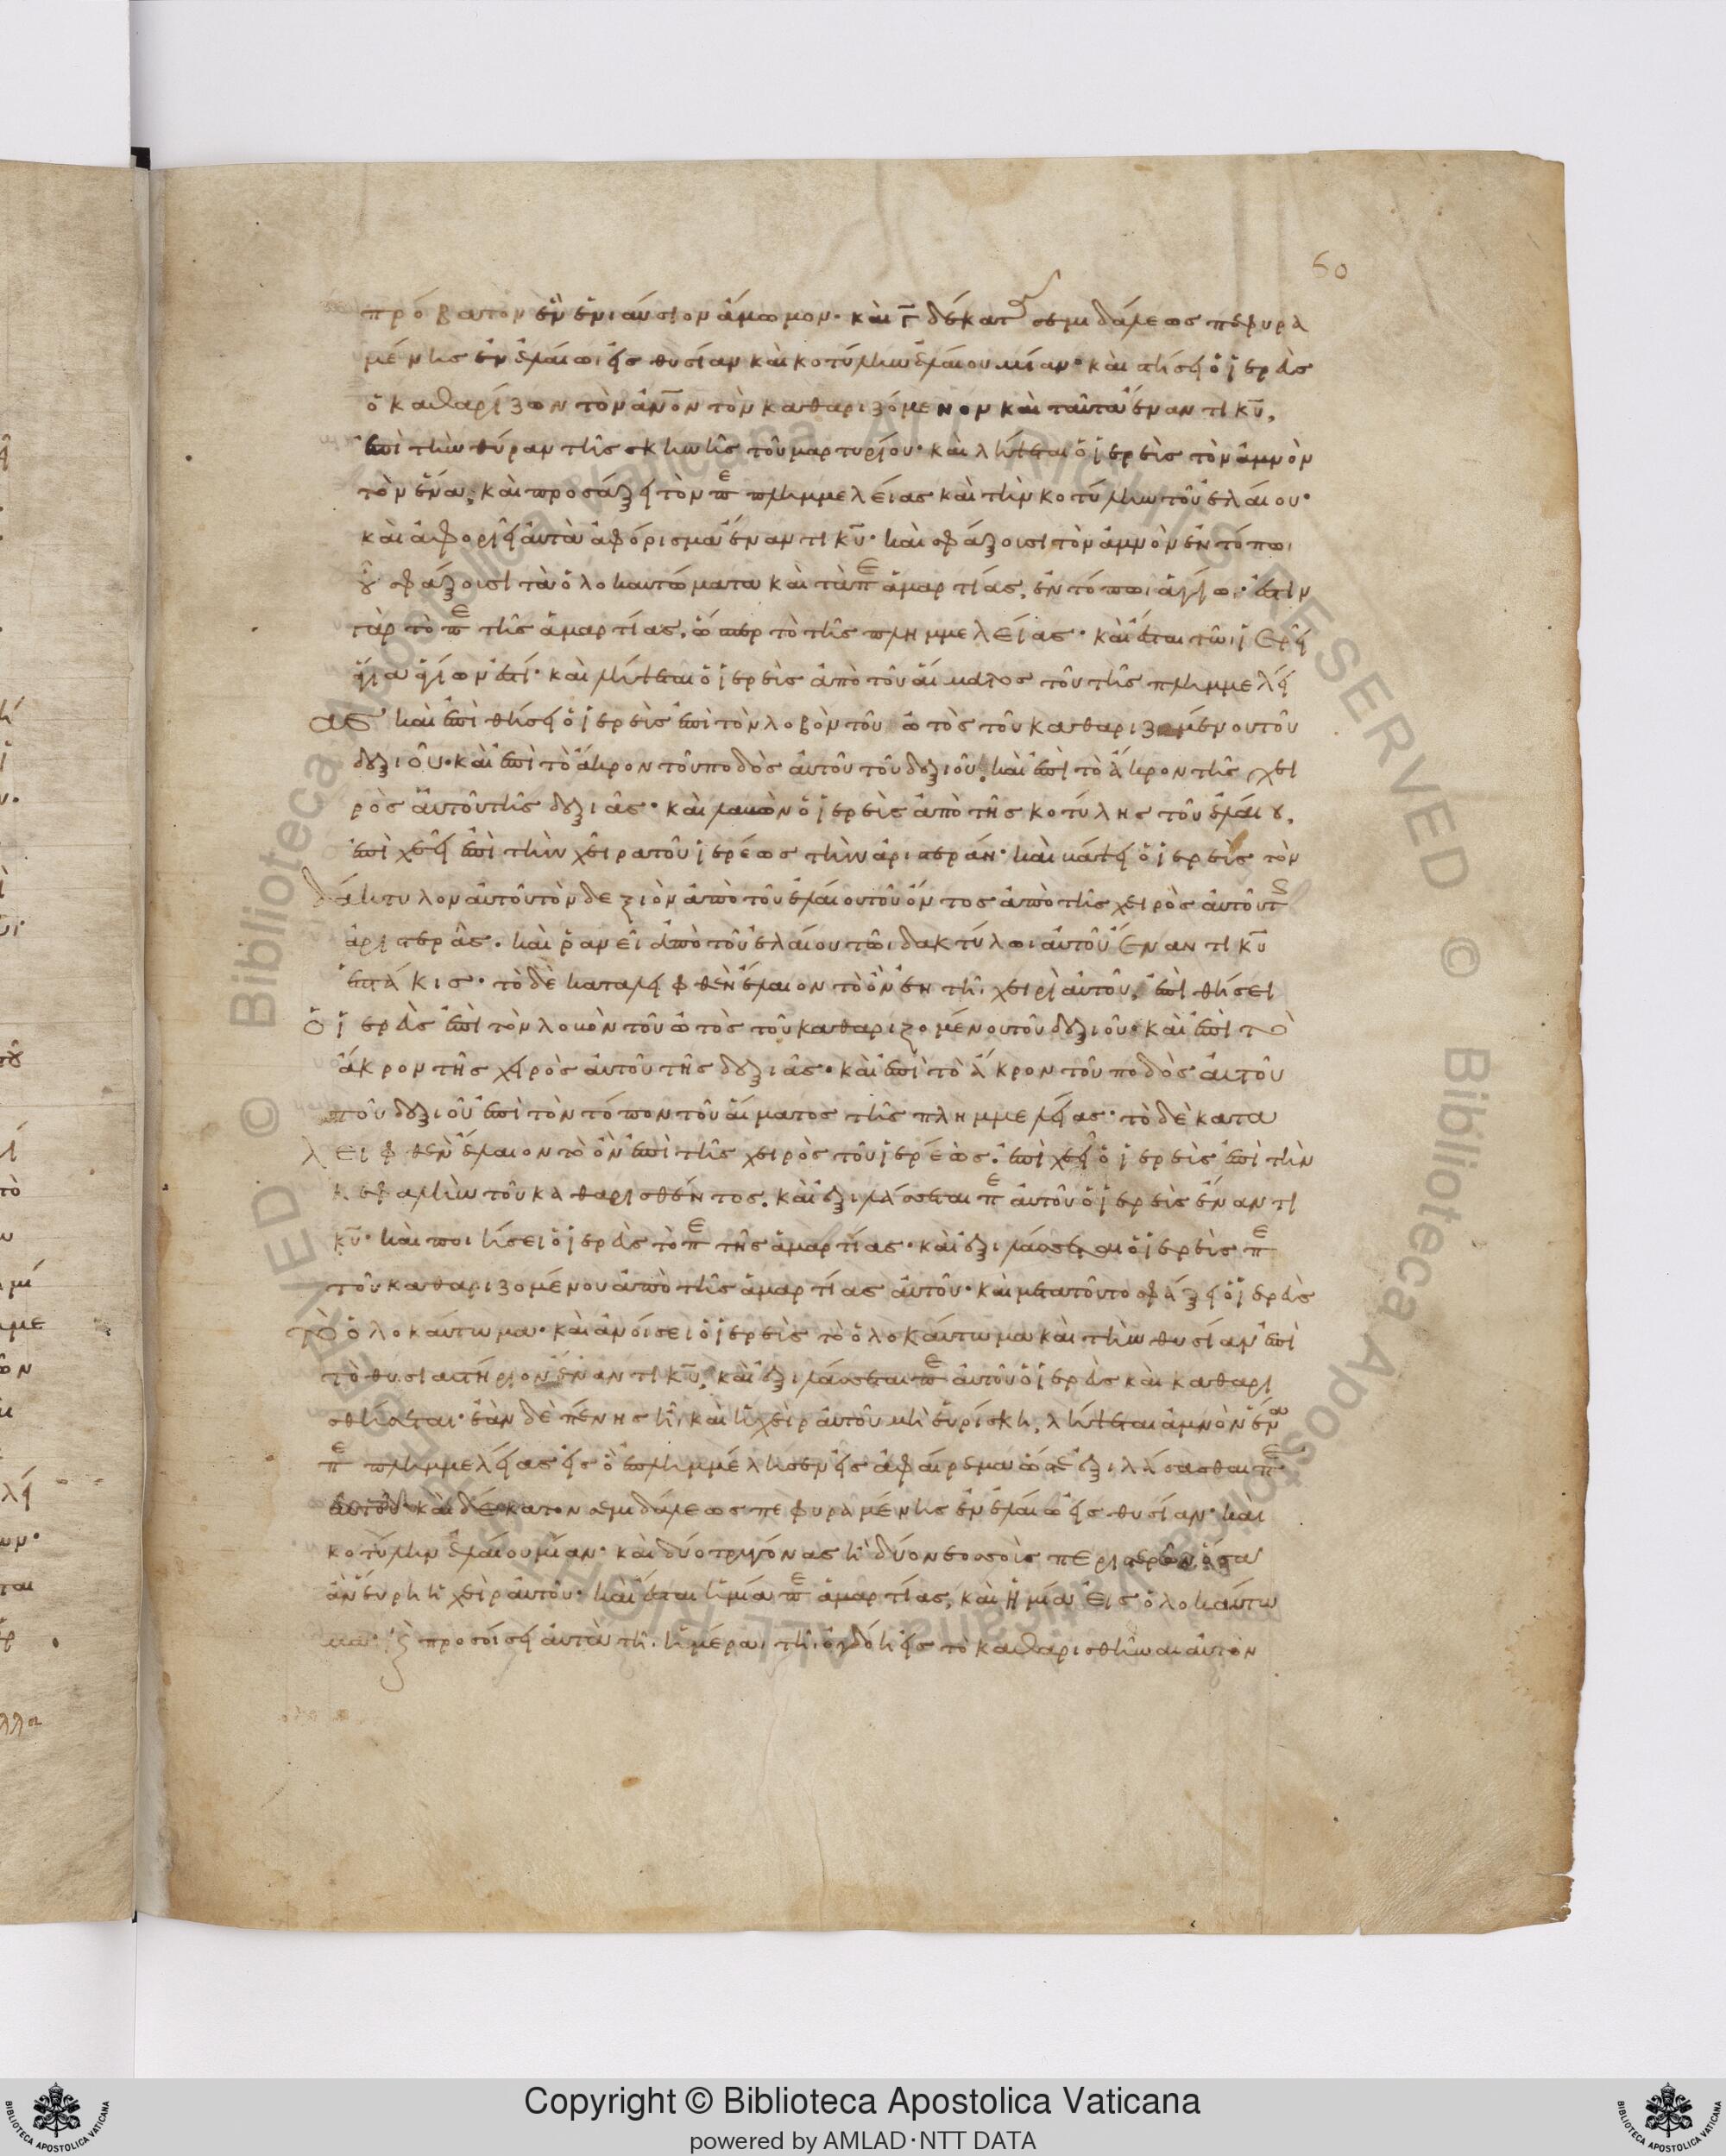 60
πρόβατον ἓν ἐνιαύσιον ἄμωμον· καὶ γ̄ δέκατ σεμιδάλεως πεφυρα
μένης ἐν ἐλαίωι εἰς θυσίαν καὶ κοτύλην ἐλαίου μίαν· καὶ στήσει ὁ ἱερεὺς
ὁ καθαρίζων τὸν ἄν̅ο̅ν τὸν καθαριζόμενον καὶ ταῦτα ἔναντι κ̅υ̅,
ἐπὶ τὴν θύραν τῆς σκηνῆς τοῦ μαρτυρίου· καὶ λήψεται ὁ ἱερεὺς τὸν ἀμνὸν
τὸν ἕνα, καὶ προσάξει τὸν π̅ε̅ πλημμελείας καὶ τὴν κοτύλην τοῦ ἐλαίου·
καὶ ἀφοριεῖ αὐτὰ ἀφόρισμα ἔναντι κ̅υ̅· καὶ σφάξουσι τὸν ἀμνὸν ἐν τόπωι
οὗ σφάζουσι τὰ ὁλοκαυτώματα καὶ τὰ π̅ε̅ ἁμαρτίας, ἐν τόπωι ἁγίωι· ἔστιν
γὰρ τὸ π̅ε̅ τῆς ἁμαρτίας, ὥσπερ τὸ τῆς πλημμελείας· καὶ ἔσται τῶι ἱερεῖ
ἅγια ἁγίων ἐστί· καὶ λήψεται ὁ ἱερεὺς ἀπὸ τοῦ αἵματος τοῦ τῆς πλημμελεί
ας καὶ ἐπιθήσει ὁ ἱερεὺς ἐπὶ τὸν λοβὸν τοῦ ὠτὸς τοῦ καθαριζομένου τοῦ
δεξιοῦ· καὶ ἐπὶ τὸ ἄκρον τοῦ ποδὸς αὐτοῦ τοῦ δεξιοῦ, καὶ ἐπὶ τὸ ἄκρον τῆς χει
ρὸς αὐτοῦ τῆς δεξιᾶς· καὶ λαβὼν ὁ ἱερεὺς ἀπὸ τῆς κοτύλης τοῦ ἐλαίου,
ἐπιχεεῖ ἐπὶ τὴν χεῖρα τοῦ ἱερέως τὴν ἀριστεράν· καὶ βάψει ὁ ἱερεὺς τὸν
δάκτυλον αὐτοῦ τὸν δεξιὸν ἀπὸ τοῦ ἐλαίου τοῦ ὄντος ἀπὸ τῆς χειρὸς αὐτοῦ τ
ἀριστερᾶς· καὶ ῥανεῖ ἀπὸ τοῦ ἐλαίου τῶι δακτύλωι αὐτοῦ ἔναντι κ̅υ̅
ἑπτάκις· τὸ δὲ καταλειφθὲν ἔλαιον τὸ ὂν ἐν τῆι χειρὶ αὐτοῦ, ἐπιθήσει
ὁ ἱερεὺς ἐπὶ τὸν λοβὸν τοῦ ὠτὸς τοῦ καθαριζομένου τοῦ δεξιοῦ· καὶ ἐπὶ τὸ
ἄκρον τῆς χειρὸς αὐτοῦ τῆς δεξιᾶς· καὶ ἐπὶ τὸ ἄκρον τοῦ ποδὸς αὐτοῦ
τοῦ δεξιοῦ ἐπὶ τὸν τόπον τοῦ αἵματος τῆς πλημμελείας· τὸ δὲ κατα
λειφθὲν ἔλαιον τὸ ὂν ἐπὶ τῆς χειρὸς τοῦ ἱερέως· ἐπιχεεῖ ὁ ἱερεὺς ἐπὶ τὴν
κεφαλὴν τοῦ καθαρισθέντος, καὶ ἐξιλάσεται π̅ε̅ αὐτοῦ ὁ ἱερεὺς ἔναντι
κ̅υ̅· καὶ ποιήσει ὁ ἱερεὺς τὸ π̅ε̅ τῆς ἁμαρτίας· καὶ ἐξιλάσεται ὁ ἱερεὺς π̅ε̅
τοῦ καθαριζομένου ἀπὸ τῆς ἁμαρτίας αὐτοῦ· καὶ μετὰ τοῦτο σφάξει ὁ ἱερεὺς
τὸ ὁλοκαύτωμα· καὶ ἀνοίσει ὁ ἱερεὺς τὸ ὁλοκαύτωμα καὶ τὴν θυσίαν ἐπὶ
τὸ θυσιαστήριον ἔναντι κ̅υ̅, καὶ ἐξιλάσεται π̅ε̅ αὐτοῦ ὁ ἱερεὺς καὶ καθαρι
σθήσεται· ἐὰν δὲ πένης ἦι, καὶ ἡ χεὶρ αὐτοῦ μὴ εὑρίσκη, λήψεται ἀμνὸν ἕνα
π̅ε̅ πλημμελείας εἰς ὃ ἐπλημμέλησεν εἰς ἀφαίρεμα ὥστε ἐξιλάσασθαι π̅ε̅
αὐτοῦ· καὶ δέκατον σεμιδάλεως πεφυραμένης ἐν ἐλαίω εἰς θυσίαν· καὶ
κοτύλην ἐλαίου μίαν· καὶ δύο τρυγόνας ἢ δύο νεοσσοὺς περιστερῶν ὅσα
ἂν εὕρη ἡ χεὶρ αὐτοῦ· καὶ ἔσται ἡ μία π̅ε̅ ἁμαρτίας, καὶ ἡ μία εἰς ὁλοκαύτω
μα· καὶ προσοίσει αὐτὰ τῆι ἡμέραι τῆι ὀγδόηι εἰς τὸ καθαρισθῆναι αὐτὸν
Copyright © Biblioteca Apostolica Vaticana
powered by AMLAD·NTT DATA